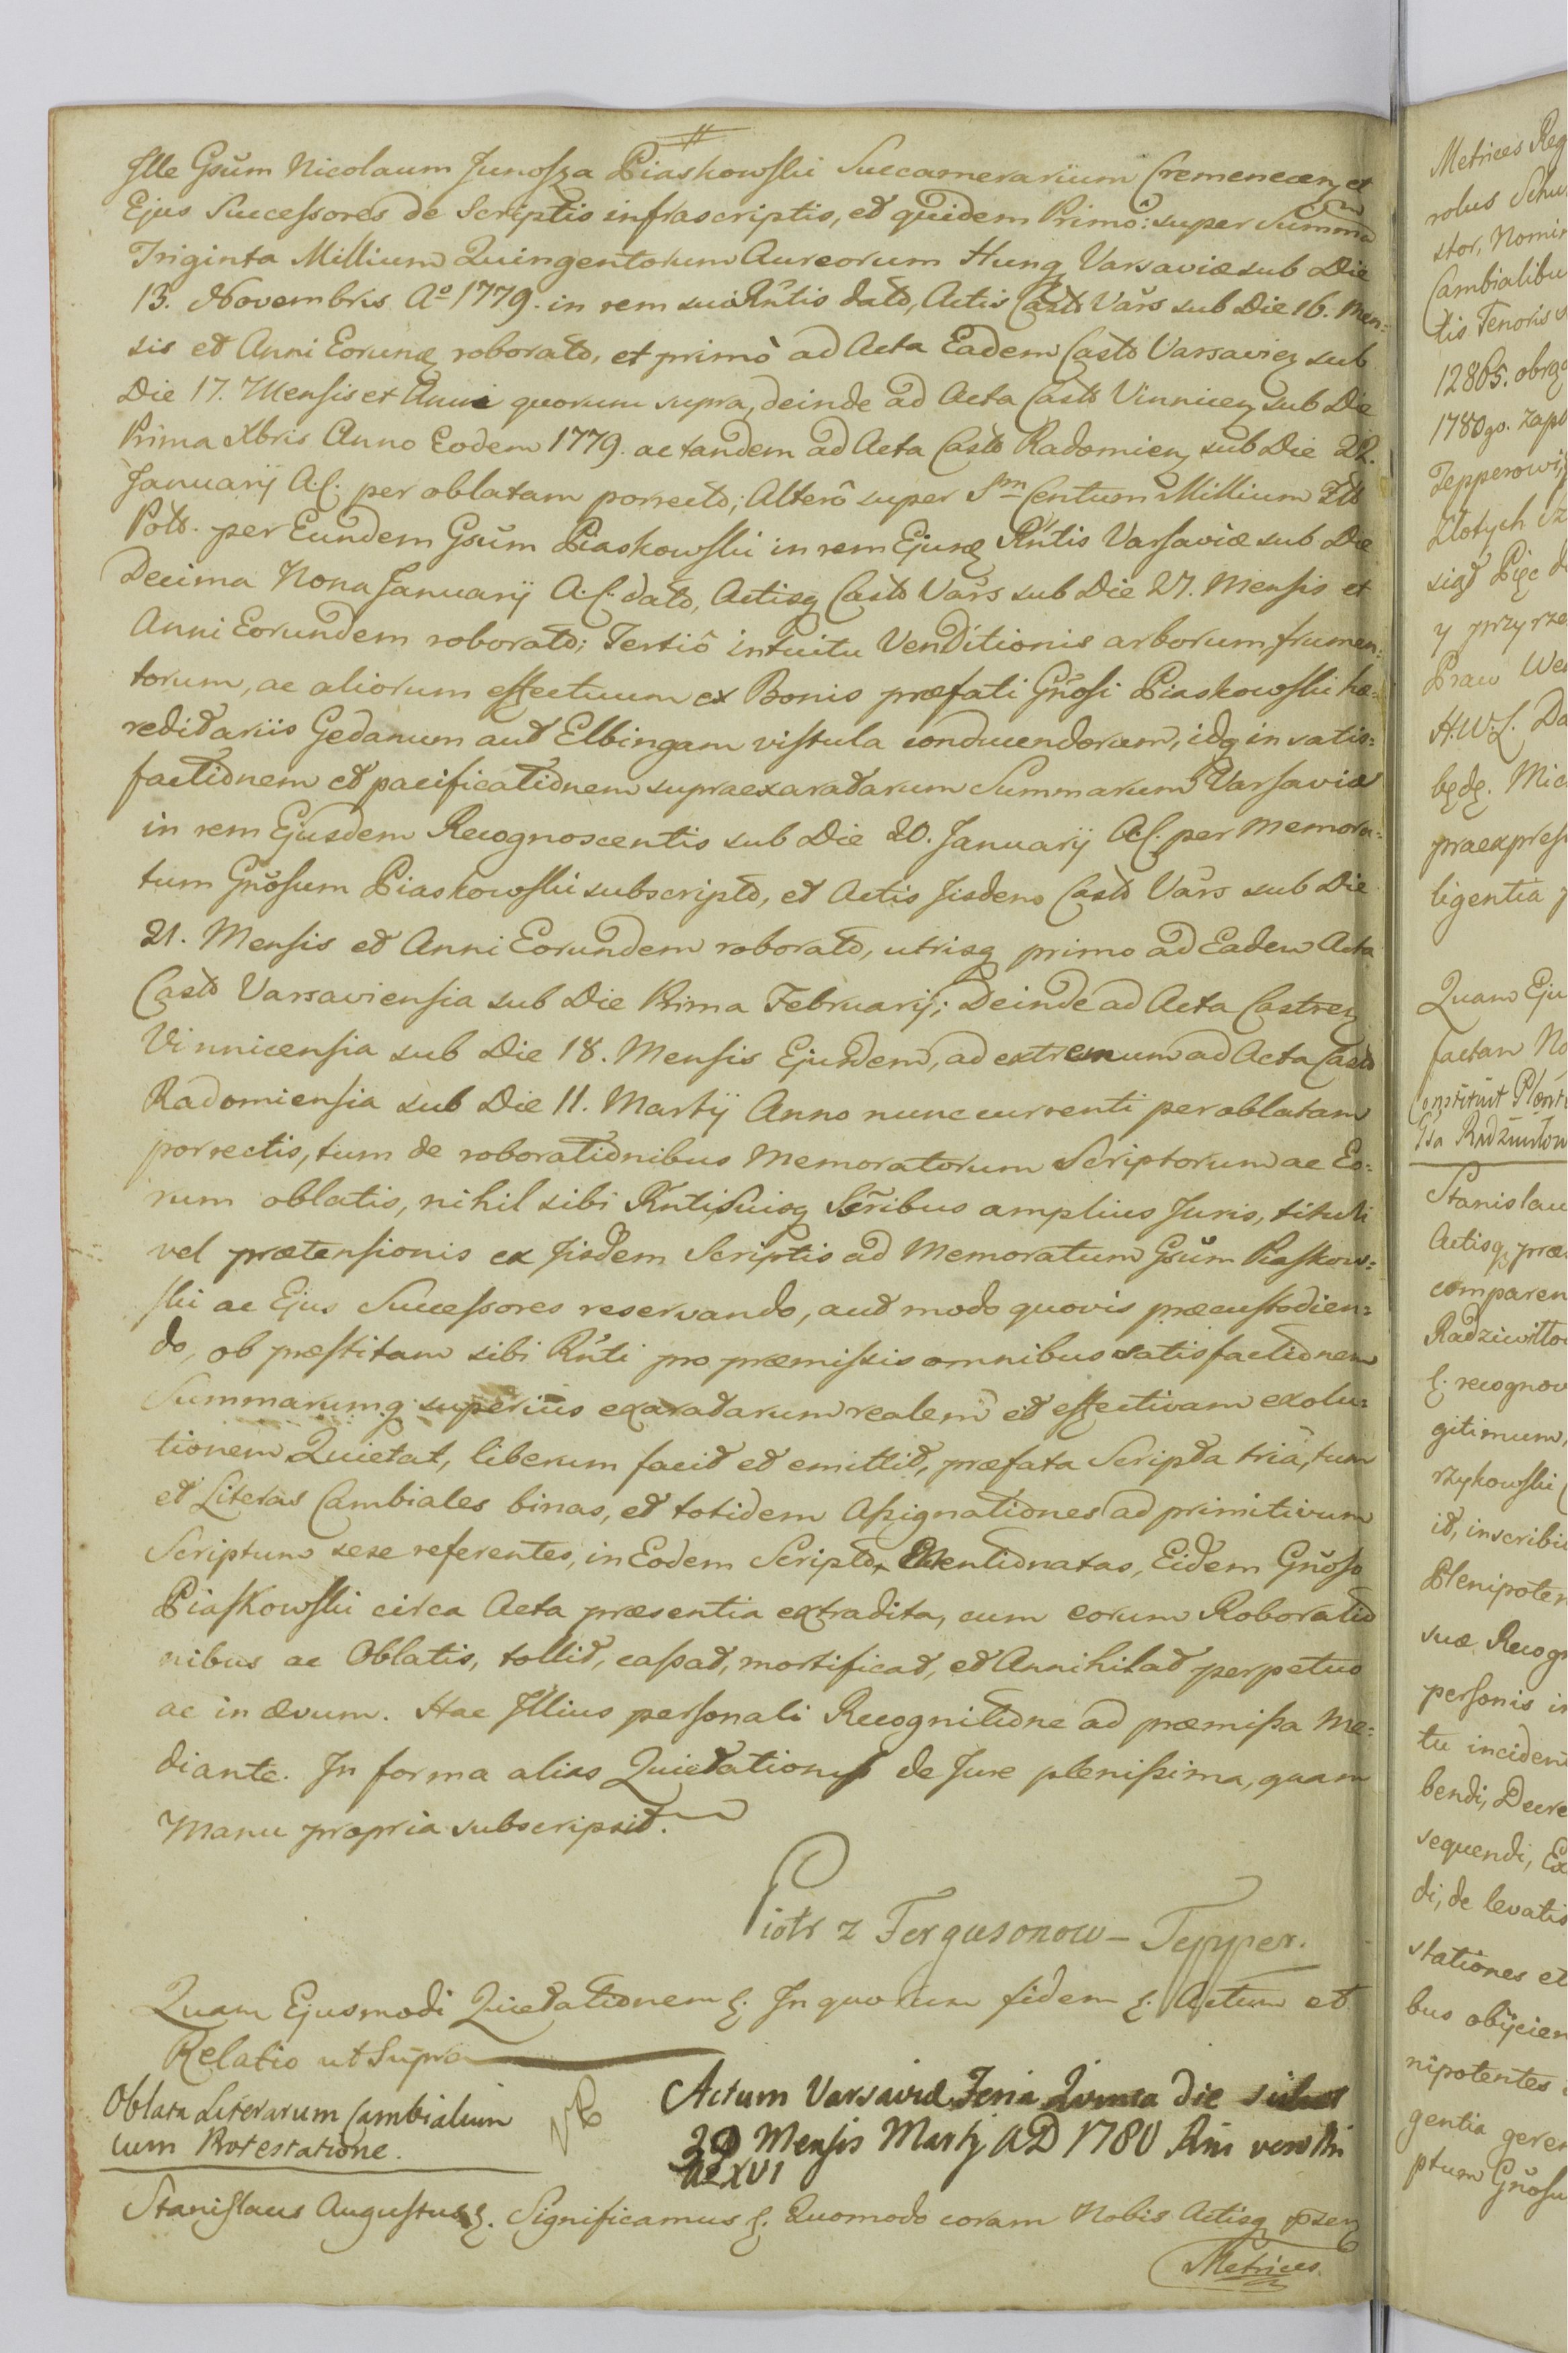 #
Ille Gsum Nicolaum Junosza Piaskowski Succamerarium Cremenecen et
Ejus Successores de Scriptis infrascriptis, et quidem Primô: super Summa
Triginta Millium Quingentorum Aureorum Hung Varsaviæ sub Die
13. Novembris Aº 1779. in rem sui Rntis dato, Actis Casts Vars sub Die 16. Men:
sis et Anni Eorundq roborato, et primò ad Acta Eadem Casts Varsavien sub
Die 17. Mensis et Anni quorum supra, deinde ad Acta Casts Vinnicen sub Die
Prima Xbris Anno Eodem 1779. ac tandem ad Acta Casts Radomien sub Die 22.
Januarij A.C. per oblatam porrecto; Alterô super Sm Centum Millium Flo
Pols. per Eundem Gsum Piaskowski in rem Ejusq Rntis Varsaviæ sub Die
Decima Nona Januarij A.C. dato, Actisq Casts Vars sub Die 27. Mensis et
Anni Eorundem roborato; Tertiô intuitu Venditionis arborum, frumen:
torum, ac aliorum effectuum ex Bonis præfati Gnosi Piaskowski hæ:
reditariis Gedanum aut Elbingam vistula conducendorum, idq in satis:
factionem et pacificationem supraexaratarum Summarum Varsaviæ
in rem Ejusdem Recognoscentis sub Die 20. Januarij A.C. per Memora:
tum Gnosum Piaskowski subscripto, et Actis Iisdem Casts Vars sub Die
21. Mensis et Anni Eorundem roborato, utrisq primo ad Eadem Acta
Casts Varsaviensia sub Die Prima Februarij; Deinde ad Acta Castren
Vinnicensia sub Die 18. Mensis Ejusdem, ad extremum ad Acta Casts
Radomiensia sub Die 11. Martij Anno nunc currenti per oblatam
porrectis, tum de roborationibus Memoratorum Scriptorum ac Eo:
rum oblatis, nihil sibi Rnti, Suisq Scribus amplius Juris, tituli
vel prætensionis ex Iisdem Scriptis ad Memoratum Gsum Piaskow:
ski ac Ejus Successores reservando, aut modo quovis præcustodien:
do, ob præstitam sibi Rnti pro præmissis omnibus satisfactionem
Summarumq superius exaratarum realem et effectivam exolu:
tionem Quietat, liberum facit et emittit, præfata Scripta tria, tum
et Literas Cambiales binas, et totidem Assignationes ad primitivum
Scriptum sese referentes, in Eodem Scripto Mentionatas, Eidem Gnoso
Piaskowski circa Acta præsentia extradita, cum eorum Roboratio
nibus ac Oblatis, tollit, cassat, mortificat, et Annihilat perpetuo
ac in ævum. Hac Illius personali Recognitione ad præmissa Me:
diante. In forma alias Quietationis de Jure plenissima, quam
Manu propria subscripsit.
Piotr z Fergusonow - Tepper.
Quam Ejusmodi Quietationem &. In quorum fidem &. Actum et
Relatio ut Supra
Oblata Literarum Cambialium
cum Protestatione.
Actum Varsaviæ Feria Quinta die
Mensis Martij AD 1780 Rni vero Nri
ao XVI
Stanislaus Augustus &. Significamus &. Quomodo coram Nobis Actisq pæn
Metrices
Metrices Reg
rolus Schu
stor, Nomin
Cambialibu
tis Tenoris
12865. obrą
1780 go. zapł
Tepperowi
Złotych
siąt Pięc
y przyrze
Praw We
H.W.L. Da
będę. Mic
praexpress
ligentia
Quam Eju
factam No
Constituit Plenip
Gsa Radziwiłłow
Stanislau
Actisq præ
comparen
Radziwiłłow
&. recognov
gitimum,
rzykowski
it, inscribi
Plenipoten
suæ Recogn
personis i
tu incident
bendi, Decre
sequendi, Ex
di, de levatis
stationes et
bus obijcien
nipotentes
gentia geren
ptum Gnosu